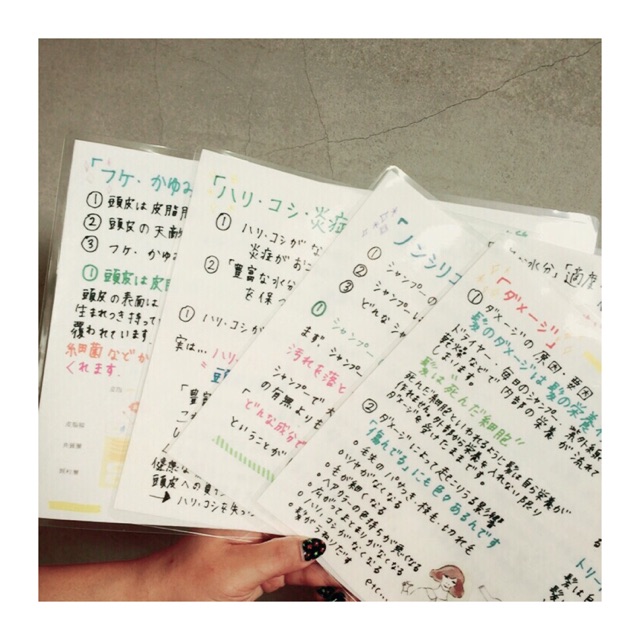 「フケ・かゆみ
① 頭皮は皮脂
② 頭皮の天
③ フケ・かゆみ
① 頭皮は皮
頭皮の表面は
生まれつき持って
覆われています
細菌などか
くれます。
「ハリ・コシ・炎症
① ハリ・コシがな
炎症がおこ
② 「豊富な水分
を保つ
① ハリ・コシが
実は…ハリ
「豊富
健康な
頭皮への
→ ハリ・コシを失
「ノンシリコ
① シャンプーの
② シャンプーは
③ どんなシャ
① シャンプー
まず シャンプー
汚れを落と
シャンプーで大
の有無よりも
「どんな成分で
ということが
な水分」「適度
「ダメージ」
① ダメージの原因・要因
髪のダメージは髪の栄養
ドライヤー、毎日のシャンプー、紫外線
乾燥などで内部の栄養が流れ
てしまいます。
髪は死んだ細胞!!
死んだ細胞といわれるように髪自ら栄養が
作れません。外部から栄養を入れない限り
ダメージを負けたままです。
② ダメージによって起こりうる影響
「傷んでる」にも色々あるんです
○ 毛先のパサつき・枝毛・切れ毛
○ ツヤがなくなる
○ 毛が細くなる
○ ヘアカラーの色持ちが悪くなる
○ 広がってまとまりがなくなる
○ ハリ、コシがなくなる
○ 髪がうねりだす
etc…
トリー
髪は自